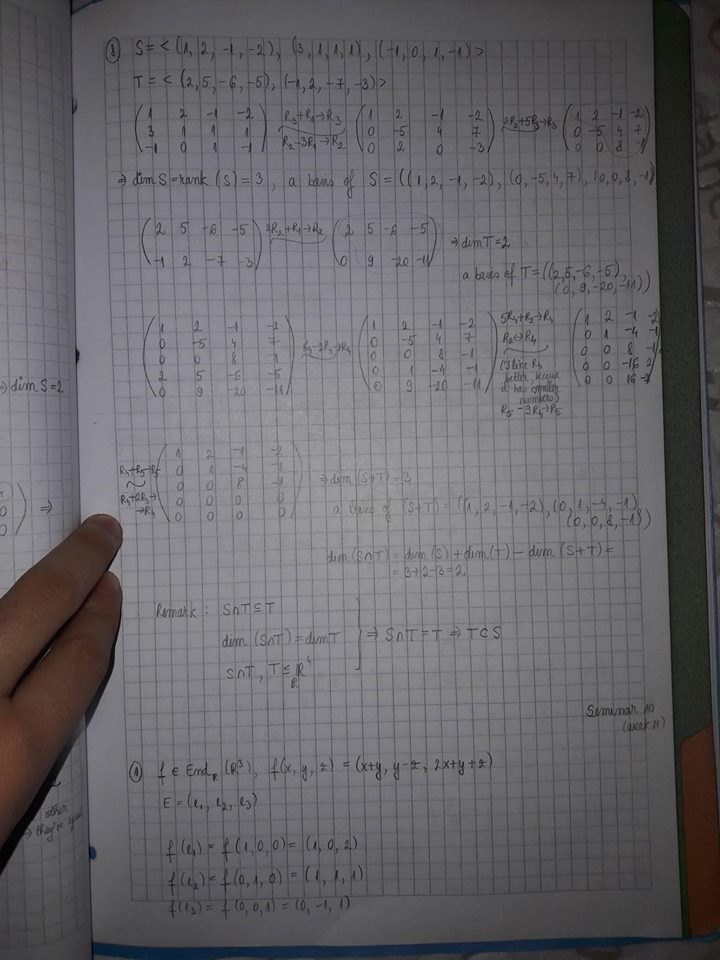 ⑧ S = < (1, 2, -1, -2), (3, 1, 1, 1), (-1, 0, 1, -1) >
T = < (2, 5, -6, -5), (-1, 2, -7, -3) >
R3+R1→R3
R2-3R1→R2
2R2+5R3→R3
1 2 -1 -2
3 1 1 1
-1 0 1 -1
1 2 -1 -2
0 -5 4 7
0 2 0 -3
1 2 -1 -2
0 -5 4 7
0 0 8 -1
⇒ dim S = rank (S) = 3, a basis of S = ((1, 2, -1, -2), (0, -5, 4, 7), (0, 0, 8, -1)
2 5 -6 -5
-1 2 -7 -3
2R2+R1→R2
2 5 -6 -5
0 9 -20 -11
⇒ dim T = 2
a basis of T = ((2, 5, -6, -5),
(0, 9, -20, -11))
1 2 -1 -2
0 -5 4 7
0 0 8 -1
2 5 -6 -5
0 9 -20 -11
1 2 -1 -2
0 -5 4 7
0 0 8 -1
0 1 -4 -1
0 9 -20 -11
5R4+R2→R4
R2↔R4
(I like R4
better because
it has smaller
numbers)
R5-9R4→R5
1 2 -1 -2
0 1 -4 -1
0 0 8 -1
0 0 -16 2
0 0 16 -7
⇒ dim S = 2
R4+R5→R5
R4+2R3→
→R4
1 2 -1 -2
0 1 -4 -1
0 0 8 -1
0 0 0 0
0 0 0 0
⇒ dim (S+T) = 3
a basis of (S+T) = ((1, 2, -1, -2), (0, 1, -4, -1),
(0, 0, 8, -1))
dim (S∩T) = dim (S) + dim (T) - dim (S+T) =
= 3+2-3 = 2
Remark: S∩T ⊆ T
dim (S∩T) = dim T
⇒ S∩T = T ⇒ T ⊂ S
S∩T, T ≤ R R⁴
Seminar 10
(week 11)
① f ∈ End R (R³), f(x, y, z) = (x+y, y-z, 2x+y+z)
E = (e1, e2, e3)
f(e1) = f(1, 0, 0) = (1, 0, 2)
f(e2) = f(0, 1, 0) = (1, 1, 1)
f(e3) = f(0, 0, 1) = (0, -1, 1)
other
⇒ they're equal